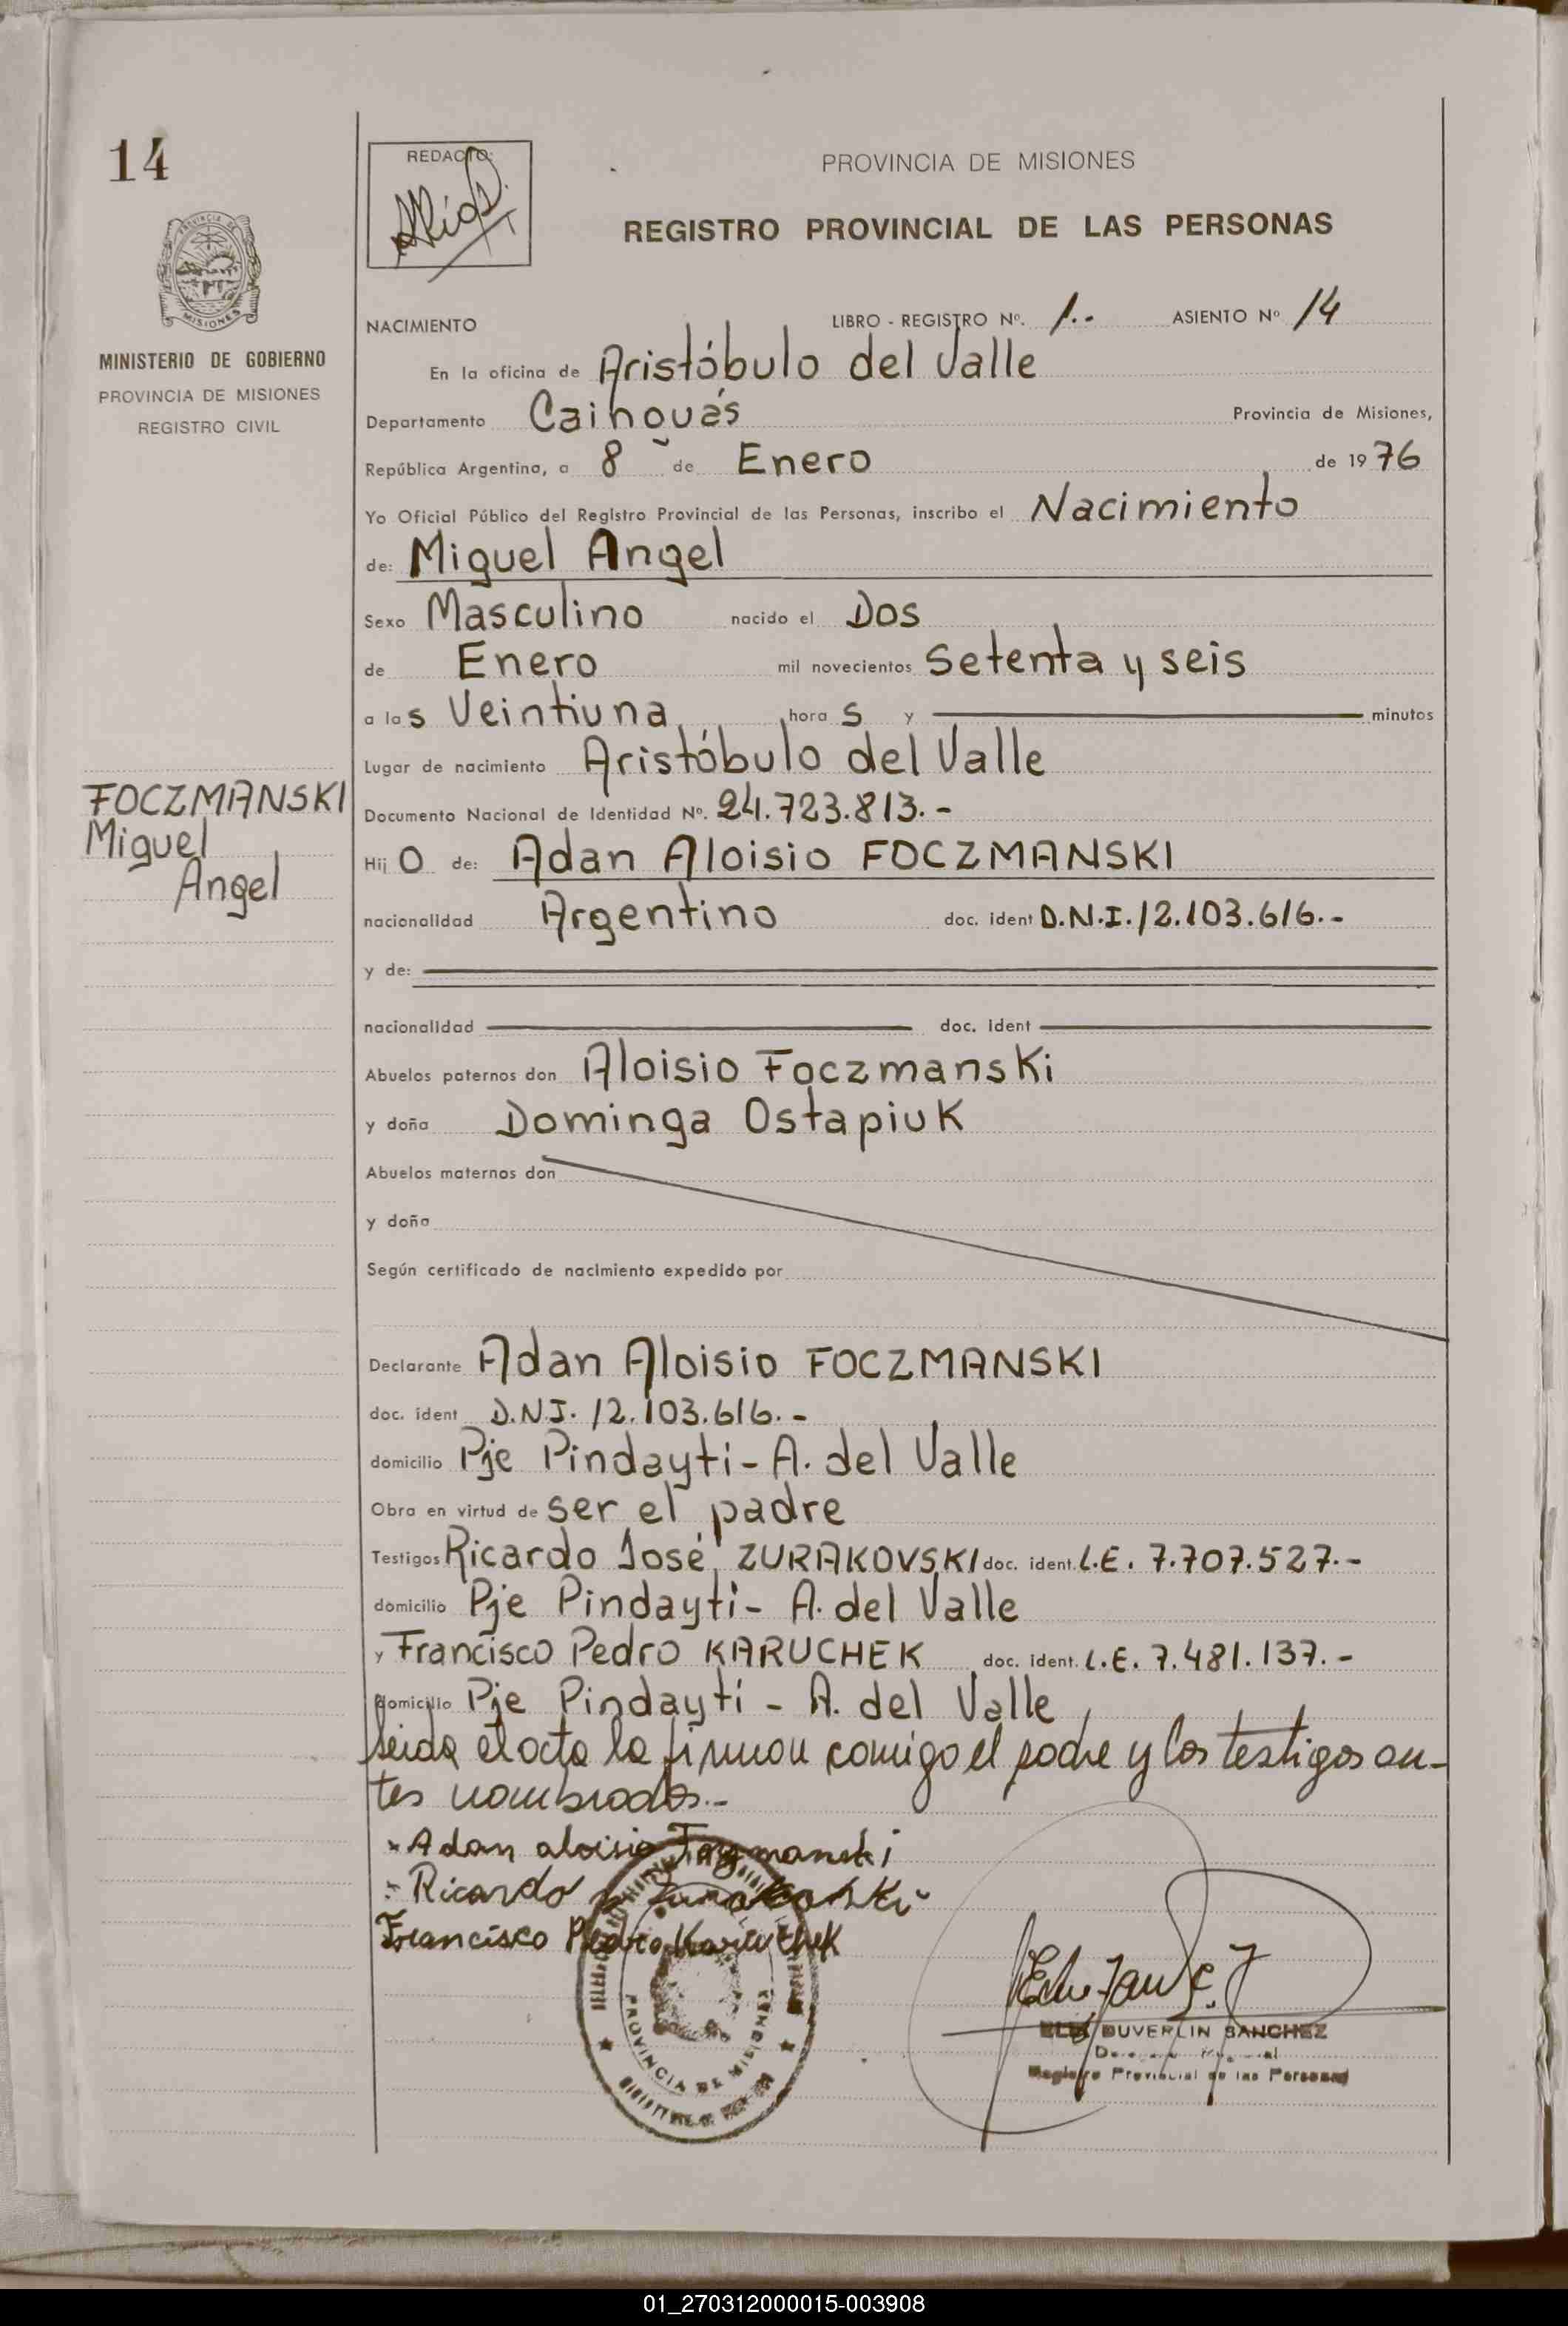 14
REDACTO:
PROVINCIA DE MISIONES
REGISTRO PROVINCIAL DE LAS PERSONAS
MISIONES
MINISTERIO DE GOBIERNO
PROVINCIA DE MISIONES
REGISTRO CIVIL
NACIMIENTO LIBRO - REGISTRO Nº. 1.- ASIENTO Nº 14
En la oficina de Aristóbulo del Valle
Departamento Cainguás Provincia de Misiones,
República Argentina, a 8 de Enero de 1976
Yo Oficial Público del Registro Provincial de las Personas, inscribo el Nacimiento
de: Miguel Angel
Sexo Masculino nacido el Dos
de Enero mil novecientos Setenta y seis
a las Veintiuna horas y minutos
Lugar de nacimiento Aristóbulo del Valle
FOCZMANSKI
Miguel
Angel
Documento Nacional de Identidad Nº. 24.723.813.-
Hijo de: Adan Aloisio FOCZMANSKI
nacionalidad Argentino doc. ident D.N.I. 12.103.616.-
y de:
nacionalidad doc. ident
Abuelos paternos don Aloisio Foczmanski
y doña Dominga Ostapiuk
Abuelos maternos don
y doña
Según certificado de nacimiento expedido por
Declarante Adan Aloisio FOCZMANSKI
doc. ident D.N.I. 12.103.616.-
domicilio Pje Pindayti - A. del Valle
Obra en virtud de ser el padre
Testigos Ricardo José ZURAKOVSKI doc. ident. L.E. 7.707.527.-
domicilio Pje Pindayti - A. del Valle
y Francisco Pedro KARUCHEK doc. ident. L.E. 7.481.137.-
domicilio Pje Pindayti - A. del Valle
leida el acta la firman comigo el padre y los testigos an-
tes nombrados.-
Adan aloisio
Ricardo
Francisco Pedro Karuchek
DUVERLIN SANCHEZ
Registro Provincial de las Personas
PROVINCIA DE MISIONES
01_270312000015-003908